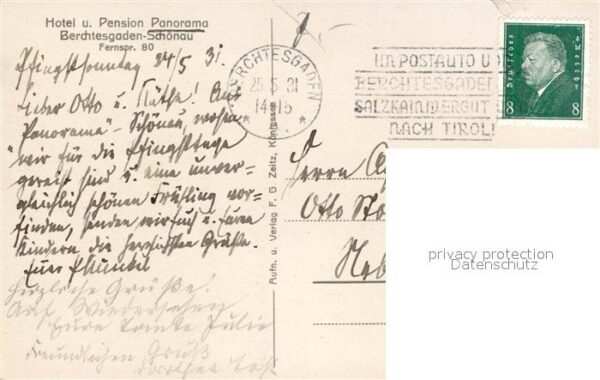 Hotel u. Pension Panorama
Berchtesgaden-Schönau
Fernspr. 80
Pfingstsonntag 24/5 31.
Lieber Otto u. Käthe! Auf
"Panorama" - Schönau, wohin
wir für die Pfingsttage
gereist sind u. eine unver-
gleichlich schönen Frühling vor-
finden, senden wir Euch u. Euren
Kindern die herzlichsten Grüße.
Euer Onkel
Herzliche Grüße!
Auf Wiedersehen
Eure Tante Julie
Freundlichen Gruß
BERCHTESGADEN
25.5.31
14-15
IM POSTAUTO VON
BERCHTESGADEN
SALZKAMMERGUT
NACH TIROL!
Deutsches Reich
8 8
Aufn. u. Verlag F. G. Zeitz, Königssee
Herrn
Otto
privacy protection
Datenschutz